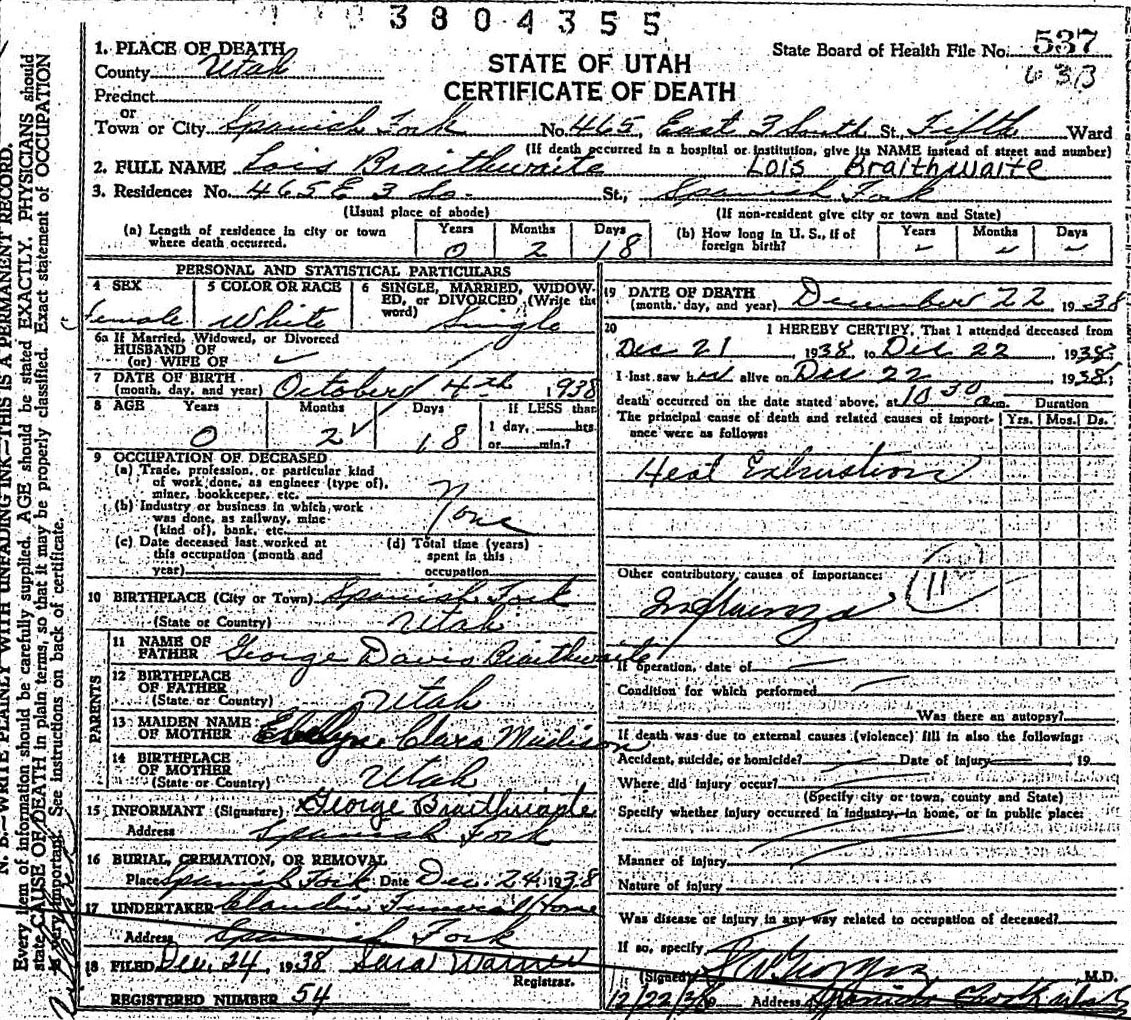 3804355
State Board of Health File No. 537
633
STATE OF UTAH
CERTIFICATE OF DEATH
1. PLACE OF DEATH
County Utah
Precinct
or
Town or City Spanish Fork No. 465 East 3 South St. Fifth Ward
(If death occurred in a hospital or institution, give its NAME instead of street and number)
2. FULL NAME Lois Braithwaite Lois Braithwaite
3. Residence: No. 465 E 3 So. St., Spanish Fork
(Usual place of abode) (If non-resident give city or town and State)
(a) Length of residence in city or town where death occurred. Years 0 Months 2 Days 18
(b) How long in U. S., if of foreign birth? Years - Months - Days -
PERSONAL AND STATISTICAL PARTICULARS
4 SEX Female
5 COLOR OR RACE White
6 SINGLE, MARRIED, WIDOW-
ED, or DIVORCED (Write the
word) Single
6a If Married, Widowed, or Divorced
HUSBAND OF
(or) WIFE OF
7 DATE OF BIRTH
(month, day, and year) October 4th 1938
8 AGE Years 0 Months 2 Days 18
If LESS than
1 day, hrs.
or min.?
9 OCCUPATION OF DECEASED
(a) Trade, profession, or particular kind
of work done, as engineer (type of),
miner, bookkeeper, etc.
None
(b) Industry or business in which work
was done, as railway, mine
(kind of), bank, etc.
(c) Date deceased last worked at
this occupation (month and
year)
(d) Total time (years)
spent in this
occupation
10 BIRTHPLACE (City or Town) Spanish Fork
(State or Country) Utah
PARENTS
11 NAME OF
FATHER George Davis Braithwaite
12 BIRTHPLACE
OF FATHER
(State or Country) Utah
13 MAIDEN NAME
OF MOTHER Clara Madison
14 BIRTHPLACE
OF MOTHER
(State or Country) Utah
15 INFORMANT (Signature) George Braithwaite
Address Spanish Fork
16 BURIAL, CREMATION, OR REMOVAL
Place Spanish Fork Date Dec. 24 1938
17 UNDERTAKER Claudin Funeral Home
Address Spanish Fork
18 FILED Dec. 24, 1938 Sara Warner
Registrar.
REGISTERED NUMBER 54
19 DATE OF DEATH
(month, day, and year) December 22 1938
20 I HEREBY CERTIFY, That I attended deceased from
Dec 21 1938, to Dec 22 1938;
I last saw her alive on Dec 22 1938;
death occurred on the date stated above, at 10 30 a.m. Duration
The principal cause of death and related causes of import-
ance were as follows:
Yrs. Mos. Ds.
Heat Exhaustion
Other contributory causes of importance:
11
Influenza
If operation, date of
Condition for which performed
Was there an autopsy?
If death was due to external causes (violence) fill in also the following:
Accident, suicide, or homicide? Date of injury 19
Where did injury occur?
(Specify city or town, county and State)
Specify whether injury occurred in industry, in home, or in public place:
Manner of injury
Nature of injury
Was disease or injury in any way related to occupation of deceased?
If so, specify
(Signed) M.D.
12/22/38 Address Spanish Fork
N. B.—WRITE PLAINLY WITH UNFADING INK—THIS IS A PERMANENT RECORD.
Every item of information should be carefully supplied. AGE should be stated EXACTLY. PHYSICIANS should
state CAUSE OF DEATH in plain terms, so that it may be properly classified. Exact statement of OCCUPATION
is very important. See instructions on back of certificate.